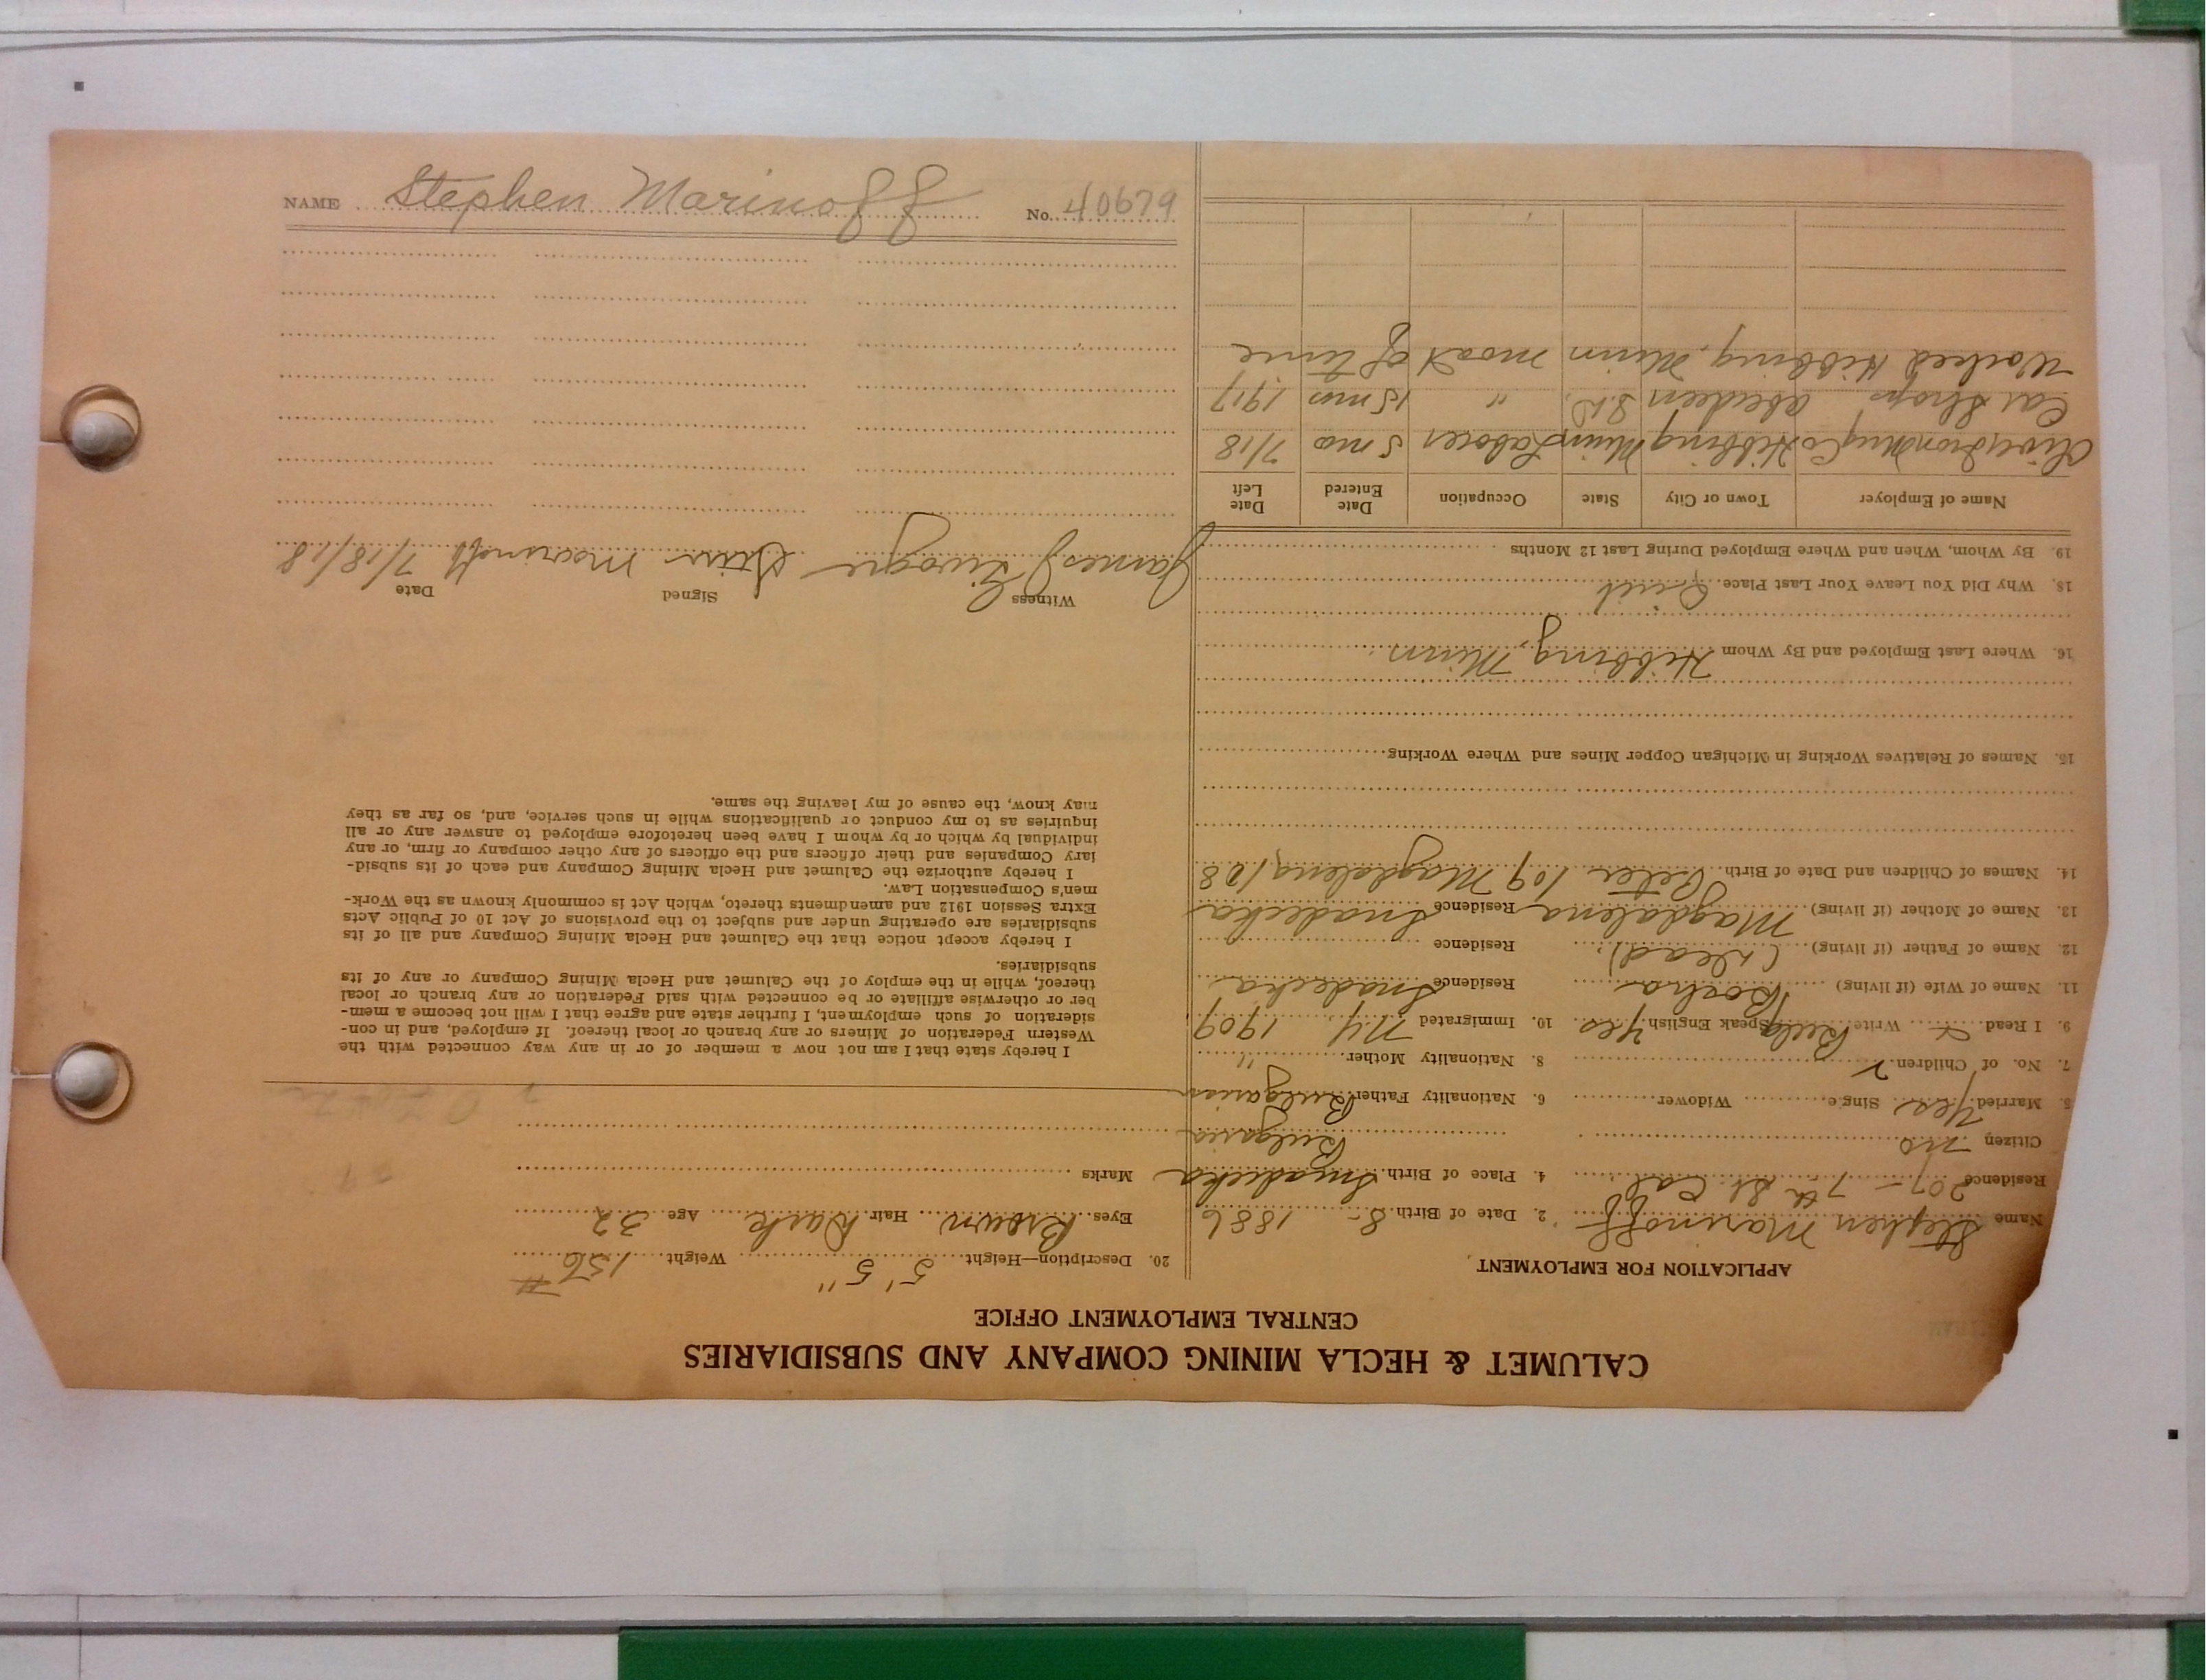 CALUMET & HECLA MINING COMPANY AND SUBSIDIARIES
CENTRAL EMPLOYMENT OFFICE
APPLICATION FOR EMPLOYMENT
Name Stephen Marinoff 2. Date of Birth 8- 1886
Residence 207 - 7th St. Cal 4. Place of Birth Smadecka
Citizen no Bulgaria
5. Married Yes Single Widower 6. Nationality Father Bulgarian
7. No. of Children 2 8. Nationality Mother "
9. I Read Write Bulg Speak English Yes 10. Immigrated NY 1909
11. Name of Wife (if living) Residence Smadecka
12. Name of Father (if living) (dead) Residence
13. Name of Mother (if living) Magdalena Residence Smadecka
14. Names of Children and Date of Birth Peter 109 Magdalena 108
15. Names of Relatives Working in Michigan Copper Mines and Where Working
16. Where Last Employed and By Whom Hibbing, Minn.
18. Why Did You Leave Your Last Place Quit
19. By Whom, When and Where Employed During Last 12 Months
Name of Employer Town or City State Occupation Date Entered Date Left
Oliver Iron Mng Co Hibbing Minn Laborer 5 mo 7/18
Car Shops Aberdeen S.D. " 15 mos 1917
Worked Hibbing, Minn most of time
20. Description—Height 5' 5" Weight 156 #
Eyes Brown Hair Dark Age 32
Marks
I hereby state that I am not now a member of or in any way connected with the
Western Federation of Miners or any branch or local thereof. If employed, and in con-
sideration of such employment, I further state and agree that I will not become a mem-
ber or otherwise affiliate or be connected with said Federation or any branch or local
thereof, while in the employ of the Calumet and Hecla Mining Company or any of its
subsidiaries.
I hereby accept notice that the Calumet and Hecla Mining Company and all of its
subsidiaries are operating under and subject to the provisions of Act 10 of Public Acts
Extra Session 1912 and amendments thereto, which Act is commonly known as the Work-
men's Compensation Law.
I hereby authorize the Calumet and Hecla Mining Company and each of its subsid-
iary Companies and their officers and the officers of any other company or firm, or any
individual by which or by whom I have been heretofore employed to answer any or all
inquiries as to my conduct or qualifications while in such service, and, so far as they
may know, the cause of my leaving the same.
Witness Signed Date
James J 7/18/18
NAME Stephen Marinoff No. 40679